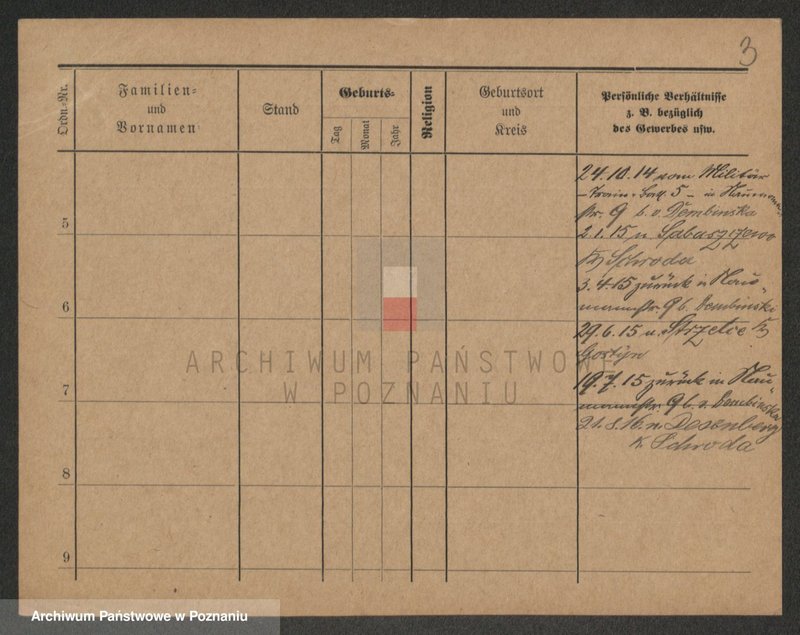 3
Ordn.-Nr.
Familien-
und
Vornamen
Stand
Geburts-
Tag
Monat
Jahr
Religion
Geburtsort
und
Kreis
Persönliche Verhältnisse
z. B. bezüglich
des Gewerbes usw.
24.10.14 vom Militär
- Train. Batl. 5 - in Naumann-
str. 9 b. v. Dembinska
2.1.15 n. Sabaszczewo
Kr Schroda
3.4.15 zurück in Nau-
mannstr. 9 b. Dembinska
29.6.15 n. Strzelce Kr
Gostyn
19.7.15 zurück in Nau-
mannstr. 9 b. v. Dembinska
21.8.16. n.
K. Schroda
5
6
7
8
9
ARCHIWUM PAŃSTWOWE
W POZNANIU
Archiwum Państwowe w Poznaniu